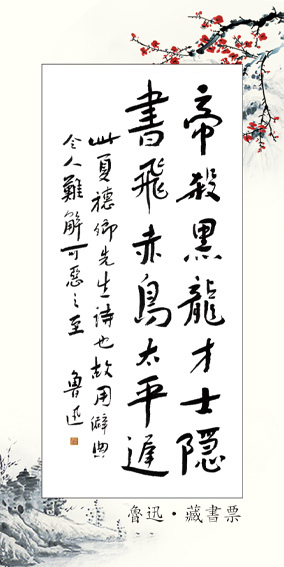 帝殺黑龍才士隱
書飛赤鳥太平遲
此夏穗卿先生詩也故用僻典
令人難解可惡之至
魯迅
魯迅·藏書票